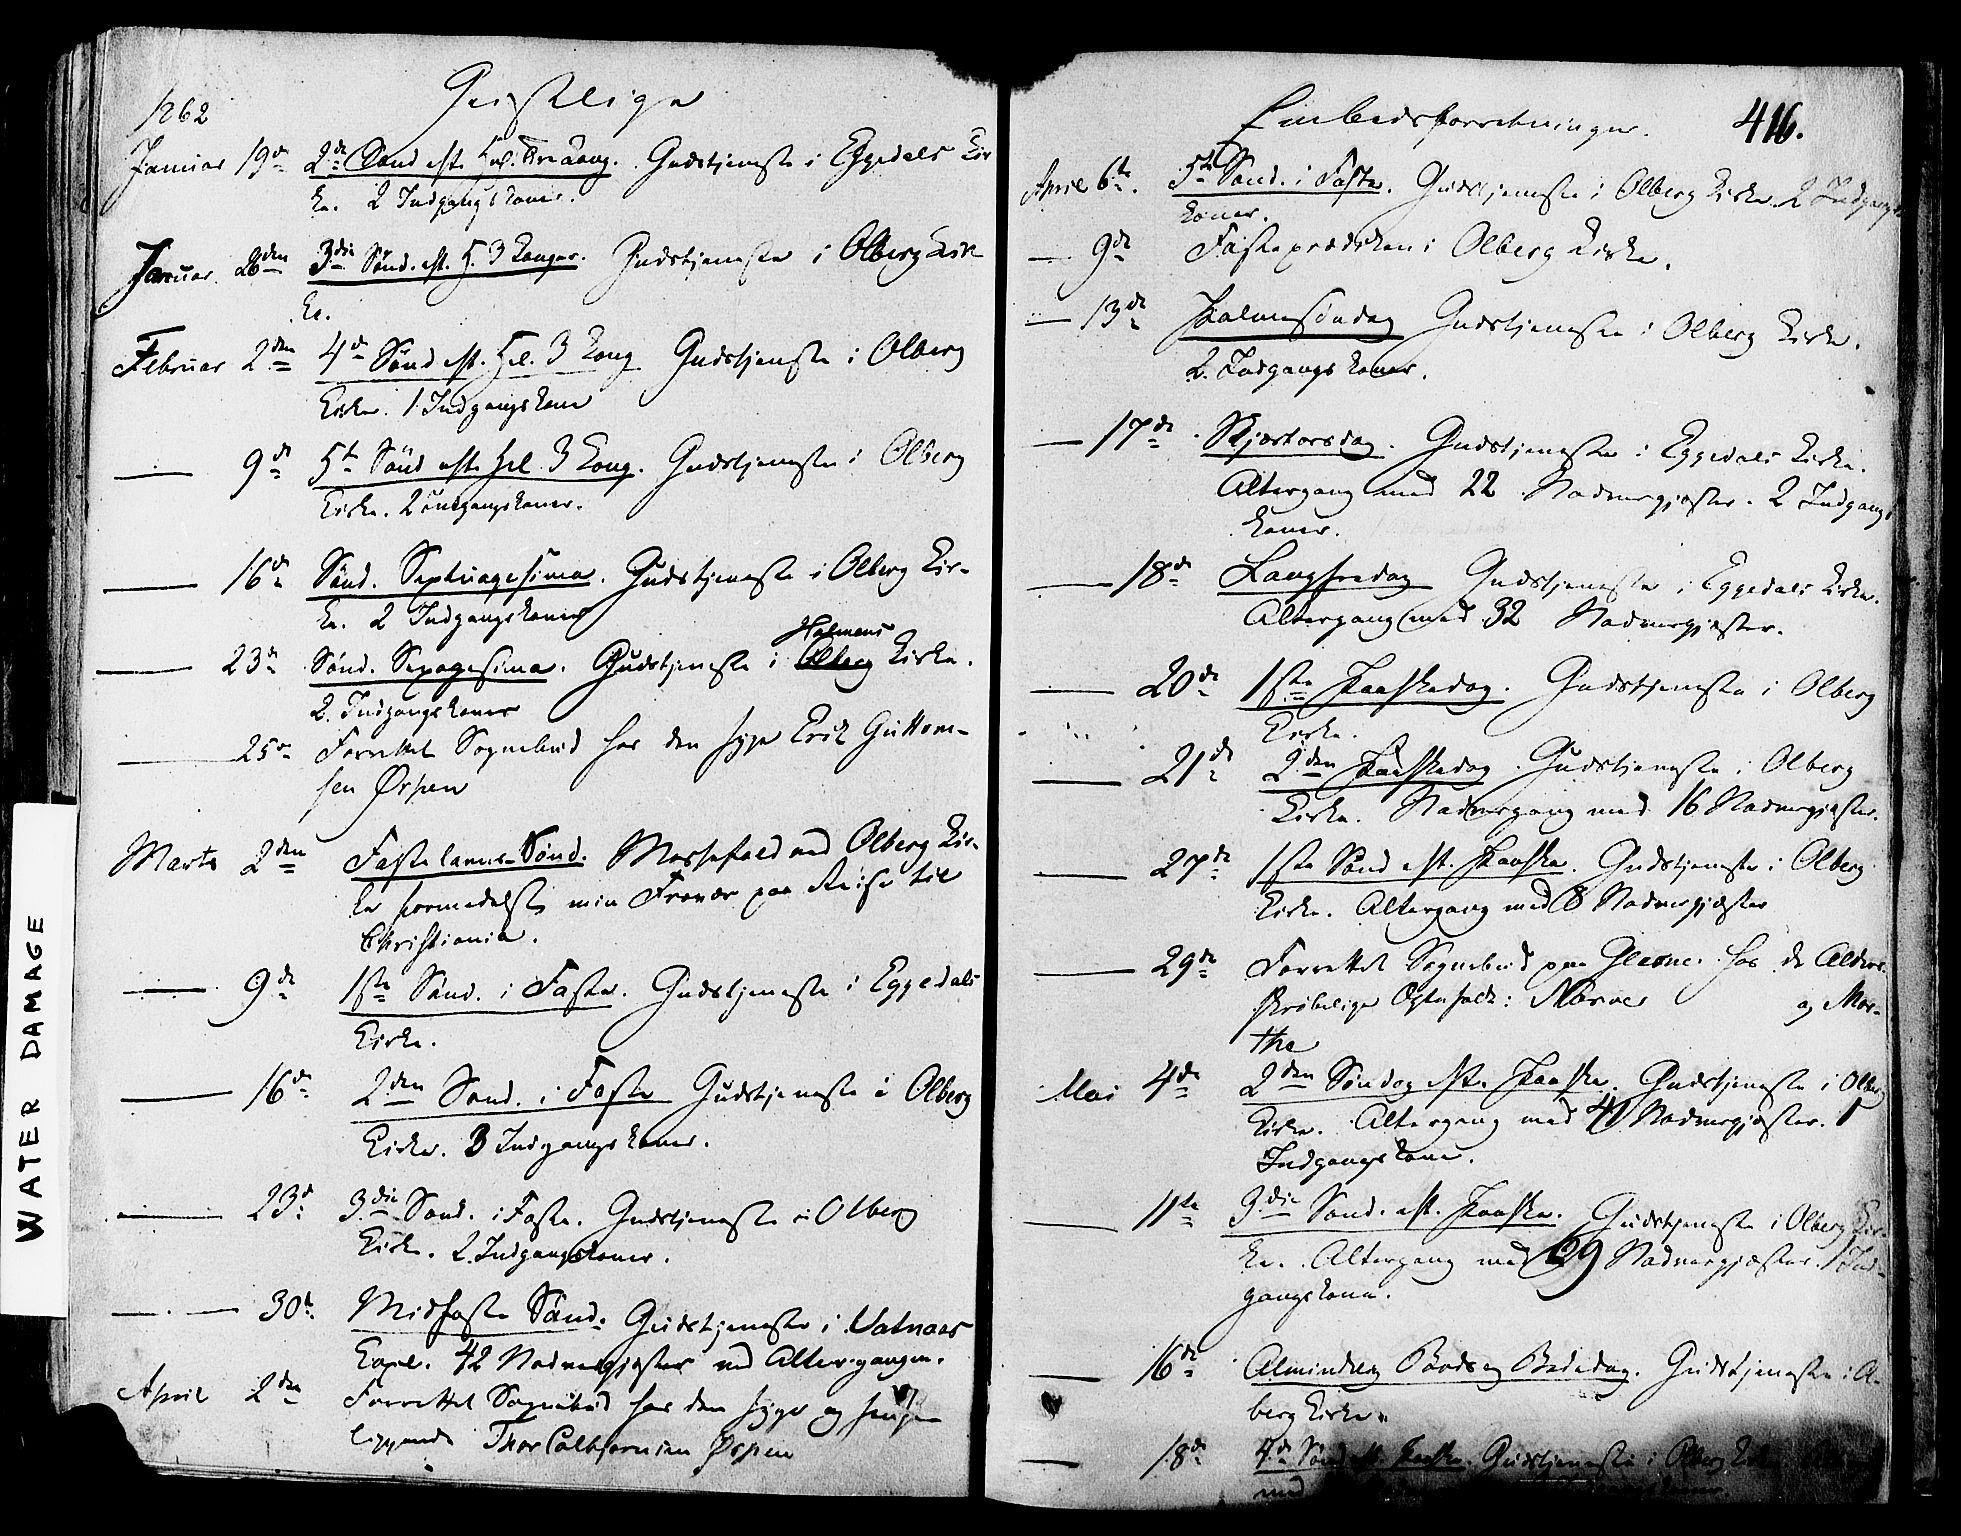 WATER DAMAGE
1862
Geistlige
Januar 19de 2de Sønd. eft. Hel. Tre Kong. Gudstjeneste i Eggedals Kir
ke. 2 Indgangskoner.
Januar 26den 3die Sønd. eft. H. 3 Konger. Gudstjeneste i Olberg Kir
ke.
Februar 2den 4de Sønd eft. Hel. 3 Kong Gudstjeneste i Olberg
Kirke. 1 Indgangskone
— 9de 5te Sønd efter Hel 3 Kong. Gudstjeneste i Olberg
Kirke. 2 Indgangskoner.
— 16de Sønd. Septuagesima. Gudstjeneste i Olberg Kir-
ke. 2 Indgangskoner
Holmens
— 23de Sønd. Sexagesima. Gudstjeneste i Olberg Kirke.
2. Indgangskoner
— 25de Forrettet Sognebud hos den syge Erik Guttorm-
sen Ørpen
Marts 2den Fastelavns-Sønd. Messefald ved Olberg Kir-
ke formedelst min Fravær paa Reise til
Christiania.
— 9de 1ste Sønd. i Faste. Gudstjeneste i Eggedals
Kirke.
— 16de 2den Sønd. i Faste Gudstjeneste i Olberg
Kirke. 3 Indgangskoner.
— 23de 3die Sønd. i Faste. Gudstjeneste i Olberg
Kirke. 2 Indgangskoner.
— 30te Midfaste Sønd. Gudstjeneste i Vatnaas
Capel. 42 Nadvergjæster ved Altergangen.
April 2den Forrettet Sognebud hos den syge og senge
liggende Thor Colbjørnsen Ørpen
Embedsforretninger. 416.
April 6te. 5te Sønd. i Faste. Gudstjeneste i Olberg Kirke. 2 Indgangs
koner.
— 9de Fasteprædiken i Olberg Kirke.
— 13de Palmesøndag Gudstjeneste i Olberg Kirke.
2. Indgangskoner.
— 17de Skjærtorsdag. Gudstjeneste i Eggedals Kirke.
Altergang med 22 Nadvergjæster. 2 Indgangs
koner.
— 18de Langfredag Gudstjeneste i Eggedals Kirke.
Altergang med 32 Nadvergjæster.
— 20de 1ste Paaskedag. Gudstjeneste i Olberg
Kirke.
— 21de 2den Paaskedag. Gudstjeneste i Olberg
Kirke. Nadvergang med 16 Nadvergjæster.
— 27de 1ste Sønd eft. Paaske. Gudstjeneste i Olberg
Kirke. Altergang med 8 Nadvergjæster
— 29de Forrettet Sognebud paa Glesne hos de Alders-
skrøbelige Ægtefolk: Narve og Mar-
the
Mai 4de 2den Søndag efter Paaske. Gudstjeneste i Olberg
Kirke. Altergang med 41 Nadvergjæster. 1
Indgangskone.
— 11te 3die Sønd. eft. Paaske. Gudstjeneste i Olberg Kir-
ke. Altergang med 29 Nadvergjæster. 1 Ind-
gangskone.
— 16de Almindelig Bods og Bededag. Gudstjeneste i Ol-
berg Kirke.
— 18de 4de Sønd eft. Paaske. Gudstjeneste i Olberg Kirke
med